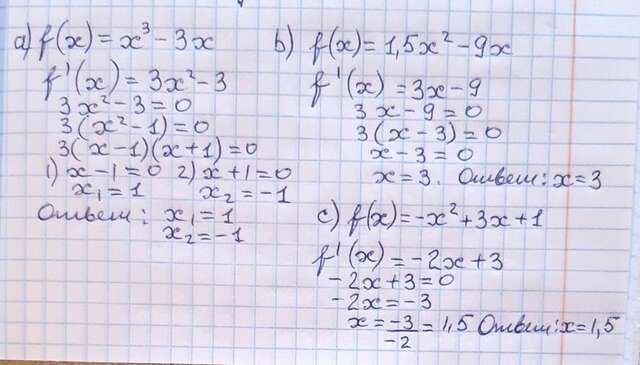 a) f(x) = x³ - 3x
f'(x) = 3x² - 3
3x² - 3 = 0
3(x² - 1) = 0
3(x - 1)(x + 1) = 0
1) x - 1 = 0 2) x + 1 = 0
x₁ = 1 x₂ = -1
Ответ: x₁ = 1
x₂ = -1
b) f(x) = 1,5x² - 9x
f'(x) = 3x - 9
3x - 9 = 0
3(x - 3) = 0
x - 3 = 0
x = 3. Ответ: x = 3
c) f(x) = -x² + 3x + 1
f'(x) = -2x + 3
-2x + 3 = 0
-2x = -3
x = -3/-2 = 1,5 Ответ: x = 1,5